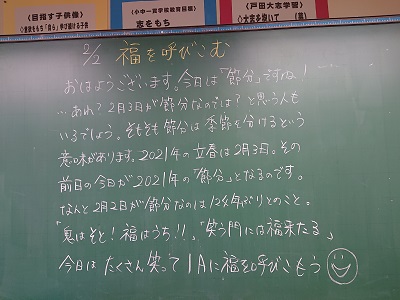 《目指す子供像》
◇意志をもち「自ら」学び続ける子
《小中一貫学校教育目標》
志をもち
《戸田大志学習》
◇大志を抱いて
2/2 福を呼びこむ
おはようございます。今日は「節分」ですね!
…あれ?2月3日が節分なのでは?と思う人も
いるでしょう。そもそも節分は季節を分けるという
意味があります。2021年の立春は2月3日。その
前日の今日が2021年の「節分」となるのです。
なんと2月2日が節分なのは124年ぶりとのこと。
「鬼はそと!福はうち!!」「笑う門には福来たる」
今日はたくさん笑って1Aに福を呼びこもう